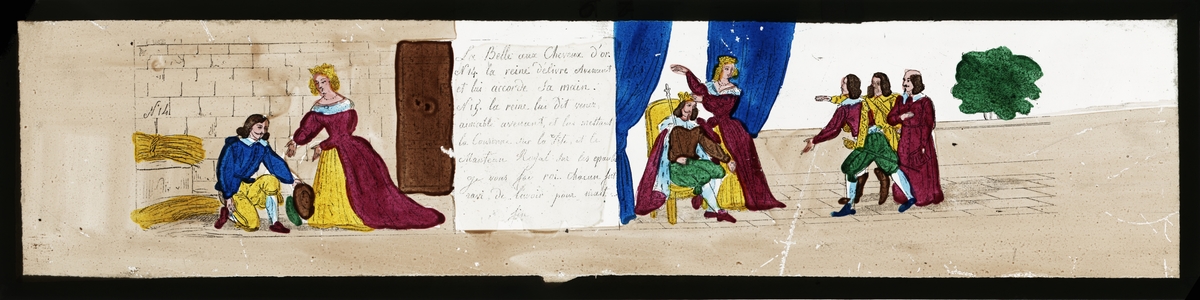 N°14
La Belle aux Cheveux d'or.
N°14. la reine délivre Avenant
et lui accorde sa main.
N°15. la reine lui dit venez
aimable avenant, et lui mettant
la Couronne sur la tête, et le
Manteau Royal sur les epaules
je vous fais roi. chacun fut
ravi de l'avoir pour
fin